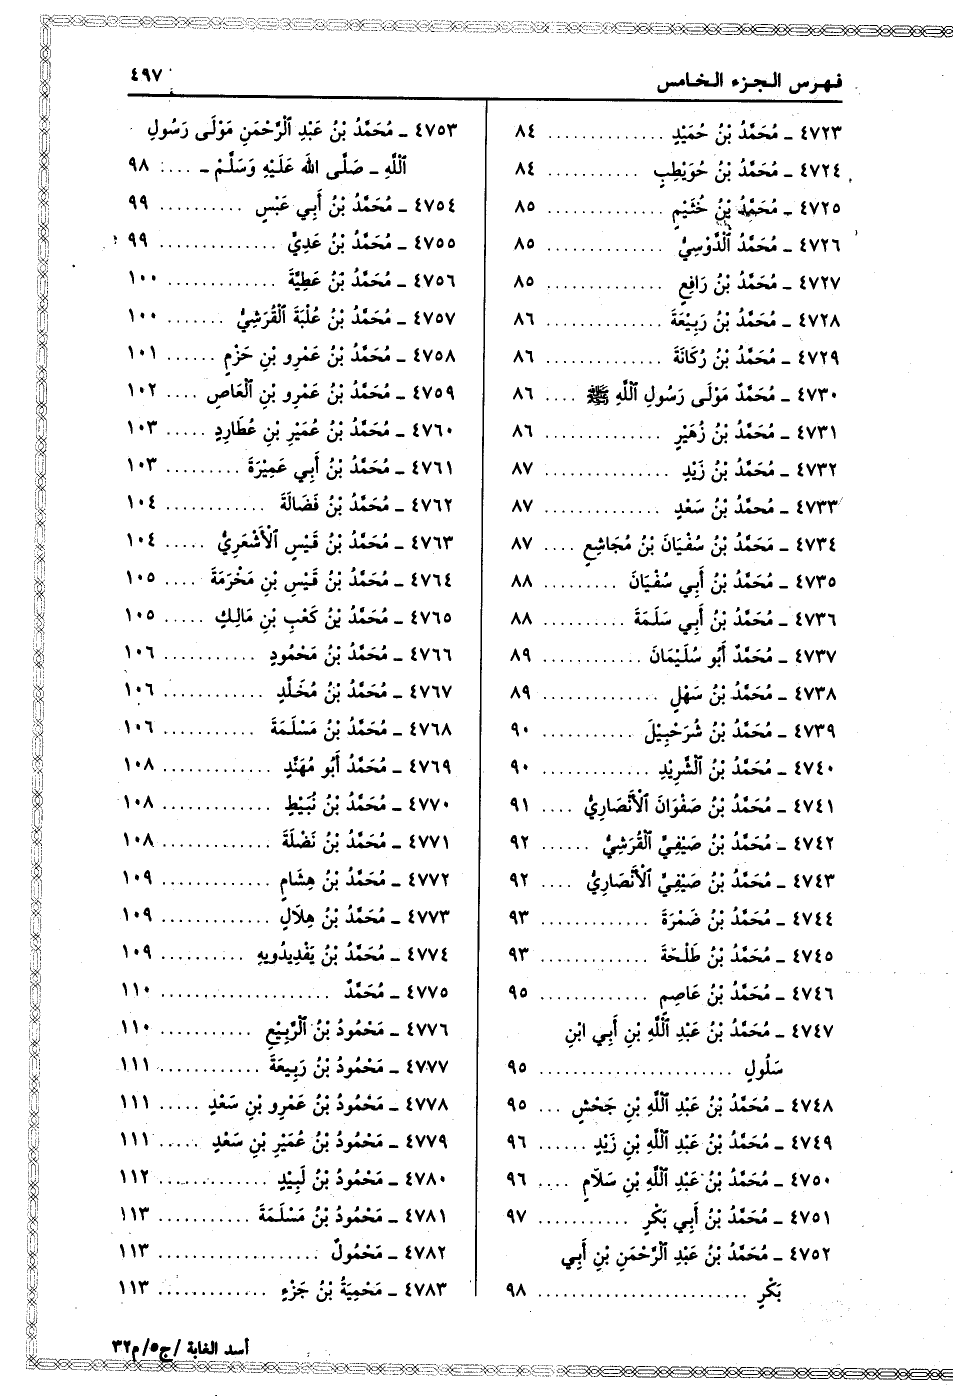 فهرس الجزء الخامس ٤٩٧
٤٧٢٣ ـ مُحَمَّدُ بْنُ حُمَيْدٍ .............. ٨٤
٤٧٢٤ ـ مُحَمَّدُ بْنُ حُوَيْطِبٍ ........... ٨٤
٤٧٢٥ ـ مُحَمَّدُ بْنُ خُثَيْمٍ .............. ٨٥
٤٧٢٦ ـ مُحَمَّدُ ٱلْدَّوْسِيُّ .............. ٨٥
٤٧٢٧ ـ مُحَمَّدُ بْنُ رَافِعٍ .............. ٨٥
٤٧٢٨ ـ مُحَمَّدُ بْنُ رَبِيْعَةَ .............. ٨٦
٤٧٢٩ ـ مُحَمَّدُ بْنُ رُكَانَةَ .............. ٨٦
٤٧٣٠ ـ مُحَمَّدٌ مَوْلَى رَسُولِ ٱللَّهِ ﷺ .... ٨٦
٤٧٣١ ـ مُحَمَّدُ بْنُ زُهَيْرٍ .............. ٨٦
٤٧٣٢ ـ مُحَمَّدُ بْنُ زَيْدٍ .............. ٨٧
٤٧٣٣ ـ مُحَمَّدُ بْنُ سَعْدٍ .............. ٨٧
٤٧٣٤ ـ مُحَمَّدُ بْنُ سُفْيَانَ بْنُ مُجَاشِعٍ .... ٨٧
٤٧٣٥ ـ مُحَمَّدُ بْنُ أَبِي سُفْيَانَ ......... ٨٨
٤٧٣٦ ـ مُحَمَّدُ بْنُ أَبِي سَلَمَةَ .......... ٨٨
٤٧٣٧ ـ مُحَمَّدٌ أَبُو سُلَيْمَانَ ............ ٨٩
٤٧٣٨ ـ مُحَمَّدُ بْنُ سَهْلٍ .............. ٨٩
٤٧٣٩ ـ مُحَمَّدُ بْنُ شُرَحْبِيْلَ ........... ٩٠
٤٧٤٠ ـ مُحَمَّدُ بْنُ ٱلْشَّرِيْدِ ............. ٩٠
٤٧٤١ ـ مُحَمَّدُ بْنُ صَفْوَانَ ٱلْأَنْصَارِيُّ .... ٩١
٤٧٤٢ ـ مُحَمَّدُ بْنُ صَيْفِيِّ ٱلْقُرَشِيُّ ...... ٩٢
٤٧٤٣ ـ مُحَمَّدُ بْنُ صَيْفِيِّ ٱلْأَنْصَارِيُّ .... ٩٢
٤٧٤٤ ـ مُحَمَّدُ بْنُ ضَمْرَةَ ............. ٩٣
٤٧٤٥ ـ مُحَمَّدُ بْنُ طَلْحَةَ ............. ٩٣
٤٧٤٦ ـ مُحَمَّدُ بْنُ عَاصِمٍ ............. ٩٥
٤٧٤٧ ـ مُحَمَّدُ بْنُ عَبْدِ ٱللَّهِ بْنِ أَبِي ابْنِ
سَلُولٍ ....................... ٩٥
٤٧٤٨ ـ مُحَمَّدُ بْنُ عَبْدِ ٱللَّهِ بْنِ جَحْشٍ ... ٩٥
٤٧٤٩ ـ مُحَمَّدُ بْنُ عَبْدِ ٱللَّهِ بْنِ زَيْدٍ ...... ٩٦
٤٧٥٠ ـ مُحَمَّدُ بْنُ عَبْدِ ٱللَّهِ بْنِ سَلَامٍ .... ٩٦
٤٧٥١ ـ مُحَمَّدُ بْنُ أَبِي بَكْرٍ ........... ٩٧
٤٧٥٢ ـ مُحَمَّدُ بْنُ عَبْدِ ٱلْرَّحْمَنِ بْنِ أَبِي
بَكْرٍ ......................... ٩٨
٤٧٥٣ ـ مُحَمَّدُ بْنُ عَبْدِ ٱلْرَّحْمَنِ مَوْلَى رَسُولِ
ٱللَّهِ ـ صَلَّى الله عَلَيْهِ وَسَلَّمْ ـ ....: ٩٨
٤٧٥٤ ـ مُحَمَّدُ بْنُ أَبِي عَبْسٍ .......... ٩٩
٤٧٥٥ ـ مُحَمَّدُ بْنُ عَدِيٍّ .............. ٩٩
٤٧٥٦ ـ مُحَمَّدُ بْنُ عَطِيَّةَ ............. ١٠٠
٤٧٥٧ ـ مُحَمَّدُ بْنُ عُلْبَةَ ٱلْقُرَشِيُّ ....... ١٠٠
٤٧٥٨ ـ مُحَمَّدُ بْنُ عَمْرِو بْنِ حَزْمٍ ...... ١٠١
٤٧٥٩ ـ مُحَمَّدُ بْنُ عَمْرِو بْنِ ٱلْعَاصِ .... ١٠٢
٤٧٦٠ ـ مُحَمَّدُ بْنُ عُمَيْرِ بْنِ عُطَارِدٍ ..... ١٠٣
٤٧٦١ ـ مُحَمَّدُ بْنُ أَبِي عَمِيْرَةَ ......... ١٠٣
٤٧٦٢ ـ مُحَمَّدُ بْنُ فَضَالَةَ ............ ١٠٤
٤٧٦٣ ـ مُحَمَّدُ بْنُ قَيْسِ ٱلْأَشْعَرِيُّ ..... ١٠٤
٤٧٦٤ ـ مُحَمَّدُ بْنُ قَيْسِ بْنِ مَخْرَمَةَ ..... ١٠٥
٤٧٦٥ ـ مُحَمَّدُ بْنُ كَعْبِ بْنِ مَالِكٍ ..... ١٠٥
٤٧٦٦ ـ مُحَمَّدُ بْنُ مَحْمُودٍ ........... ١٠٦
٤٧٦٧ ـ مُحَمَّدُ بْنُ مُخَلَّدٍ ............ ١٠٦
٤٧٦٨ ـ مُحَمَّدُ بْنُ مَسْلَمَةَ ........... ١٠٦
٤٧٦٩ ـ مُحَمَّدُ أَبُو مُهَنَّدٍ ............. ١٠٨
٤٧٧٠ ـ مُحَمَّدُ بْنُ نُبَيْطٍ ............. ١٠٨
٤٧٧١ ـ مُحَمَّدُ بْنُ نَضْلَةَ ............. ١٠٨
٤٧٧٢ ـ مُحَمَّدُ بْنُ هِشَامٍ ............. ١٠٩
٤٧٧٣ ـ مُحَمَّدُ بْنُ هِلَالٍ ............. ١٠٩
٤٧٧٤ ـ مُحَمَّدُ بْنُ يَفْدِيدُويهِ .......... ١٠٩
٤٧٧٥ ـ مُحَمَّدٌ .................... ١١٠
٤٧٧٦ ـ مَحْمُودُ بْنُ ٱلْرَّبِيْعِ ........... ١١٠
٤٧٧٧ ـ مَحْمُودُ بْنُ رَبِيعَةَ ............ ١١١
٤٧٧٨ ـ مَحْمُودُ بْنُ عَمْرِو بْنِ سَعْدٍ ..... ١١١
٤٧٧٩ ـ مَحْمُودُ بْنُ عُمَيْرِ بْنِ سَعْدٍ ..... ١١١
٤٧٨٠ ـ مَحْمُودُ بْنُ لَبِيْدٍ ............. ١١٢
٤٧٨١ ـ مَحْمُودُ بْنُ مَسْلَمَةَ ........... ١١٣
٤٧٨٢ ـ مَحْمُولٌ ................... ١١٣
٤٧٨٣ ـ مَحْمِيَةُ بْنُ جَزْءٍ ............. ١١٣
أسد الغابة /ج٥/م٣٢